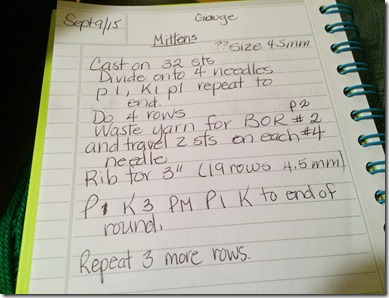 Sept 9/15
Gauge
Mittens
?? Size 4.5mm
Cast on 32 sts
Divide onto 4 needles
p1, K1 p1 repeat to
end.
Do 4 rows
p2
Waste yarn for BOR #2
and travel 2 sts on each #4
needle
Rib for 3" (19 rows 4.5mm)
P1 K3 PM P1 K to end of
round.
Repeat 3 more rows.